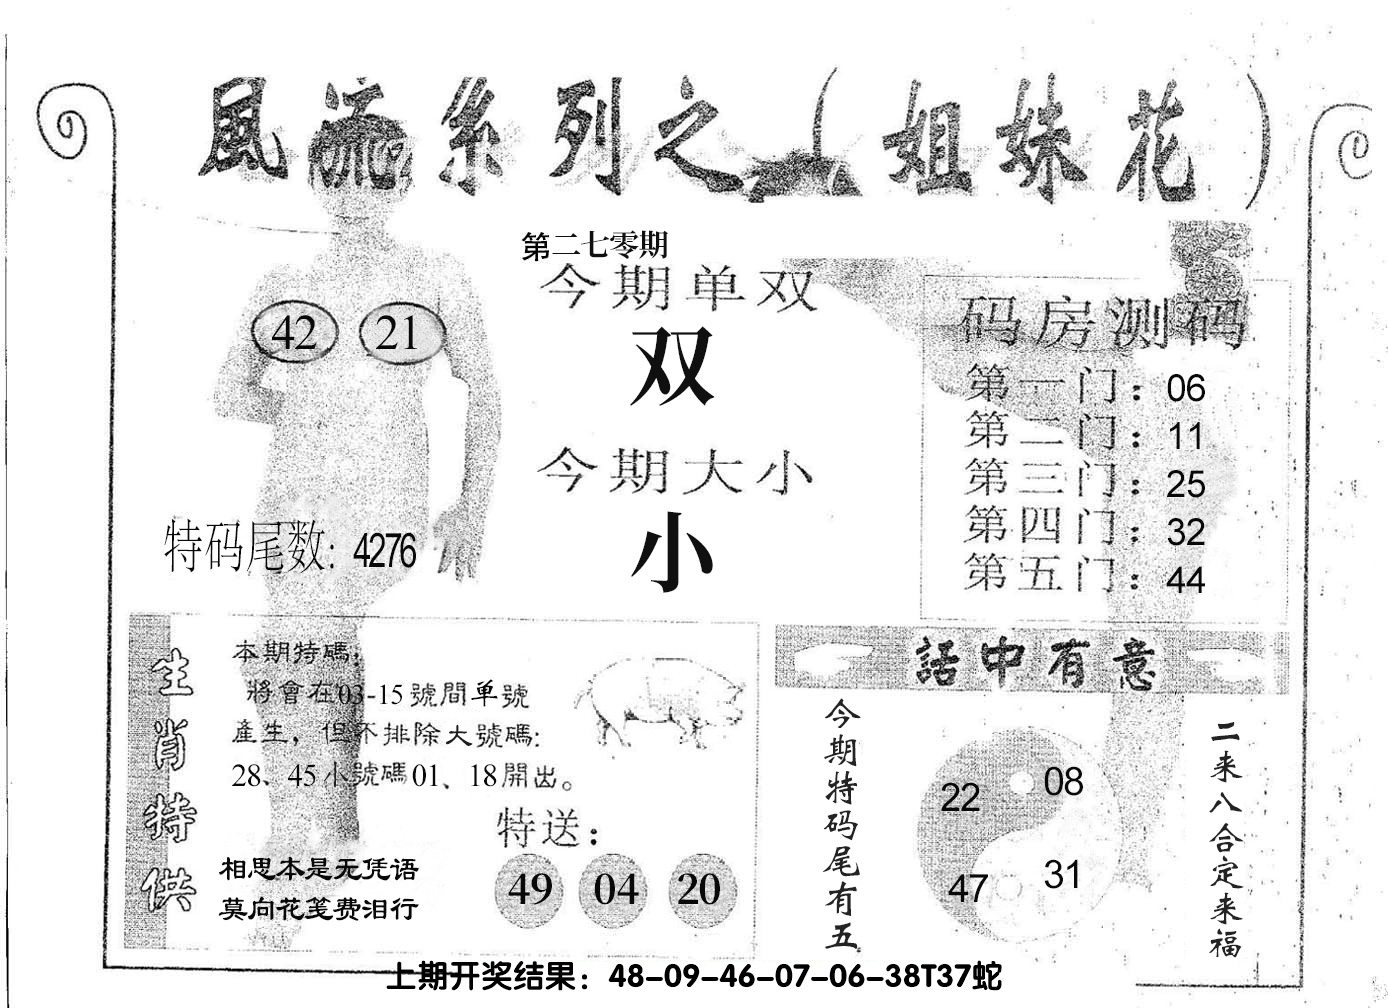 風流系列之（姐妹花）
第二七零期
今期单双
双
今期大小
小
42 21
特码尾数: 4276
码房测码
第一门：06
第二门：11
第三门：25
第四门：32
第五门：44
生肖特供
本期特碼：
將會在03-15號間单號
產生，但不排除大號碼:
28、45小號碼01、18開出。
特送：
49 04 20
相思本是无凭语
莫向花笺费泪行
話中有意
今期特码尾有五
22 08
47 31
二来八合定来福
上期开奖结果：48-09-46-07-06-38T37蛇